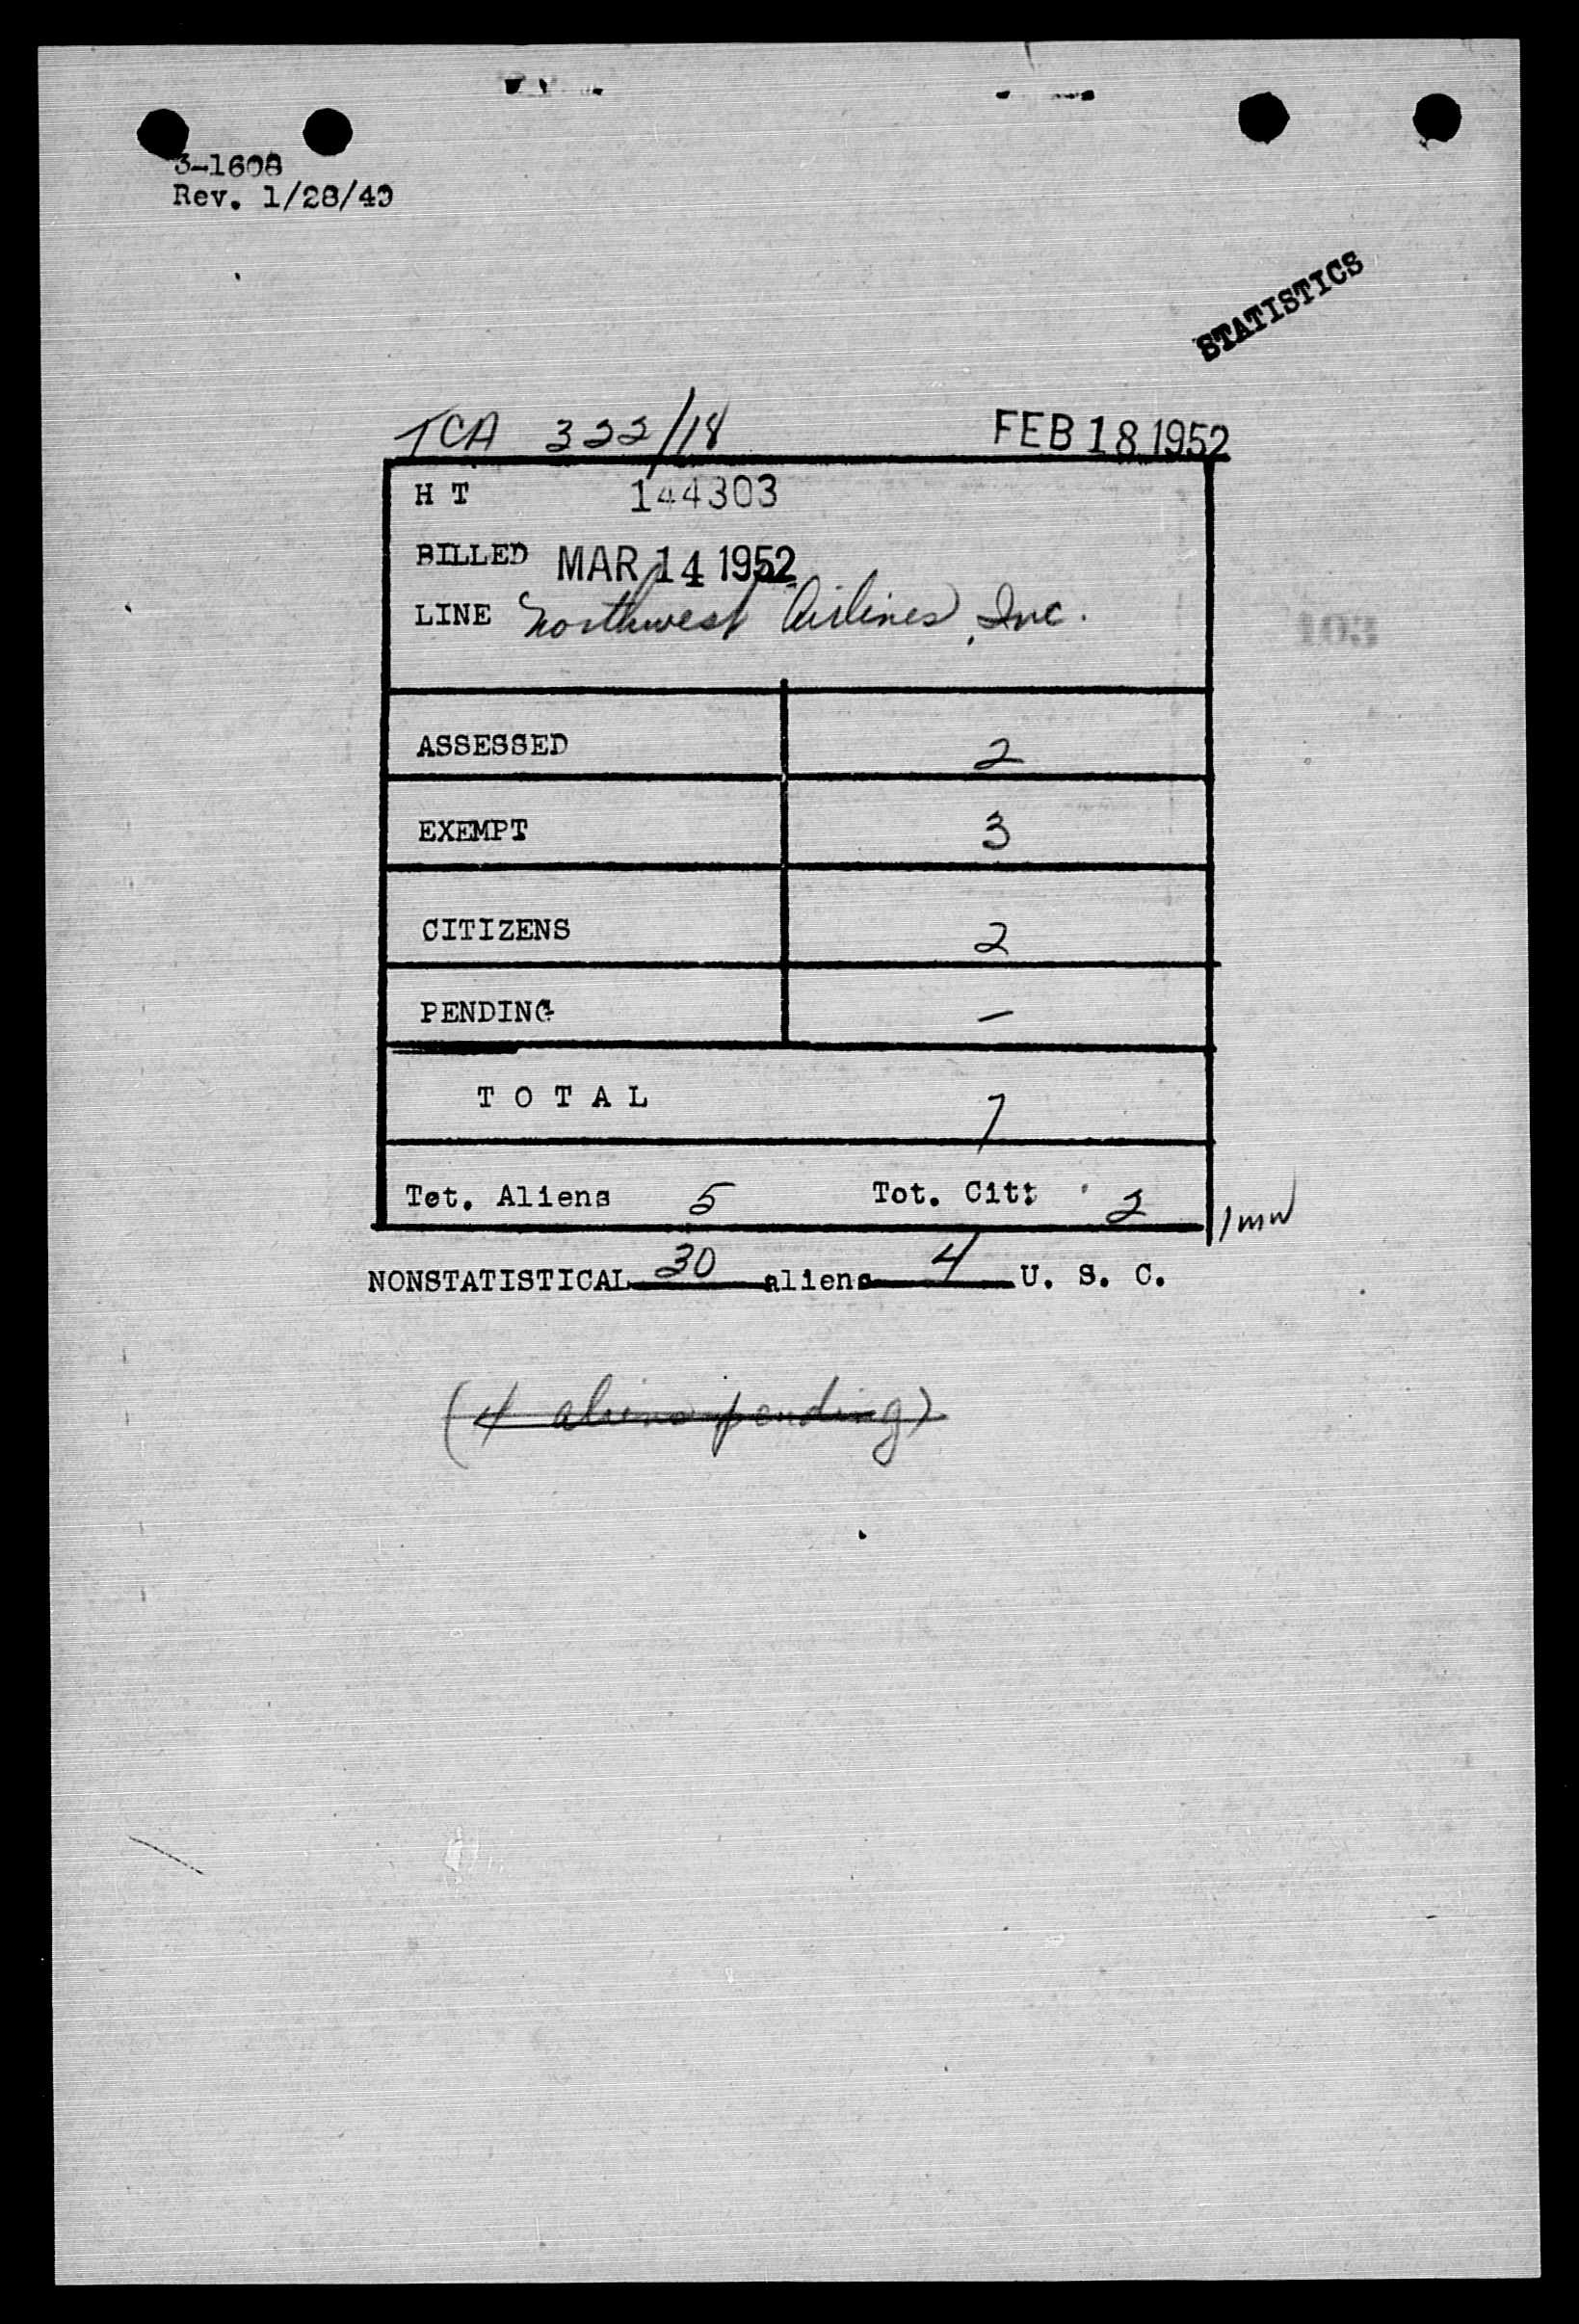 3-1608
Rev. 1/28/49
STATISTICS
TCA 322/18 FEB 18 1952
H T 144303
BILLED MAR 14 1952
LINE Northwest Airlines, Inc.
103
ASSESSED 2
EXEMPT 3
CITIZENS 2
PENDING —
T O T A L 7
Tot. Aliens 5 Tot. Cit: 2 /mw
NONSTATISTICAL 30 aliens 4 U. S. C.
(4 aliens pending)